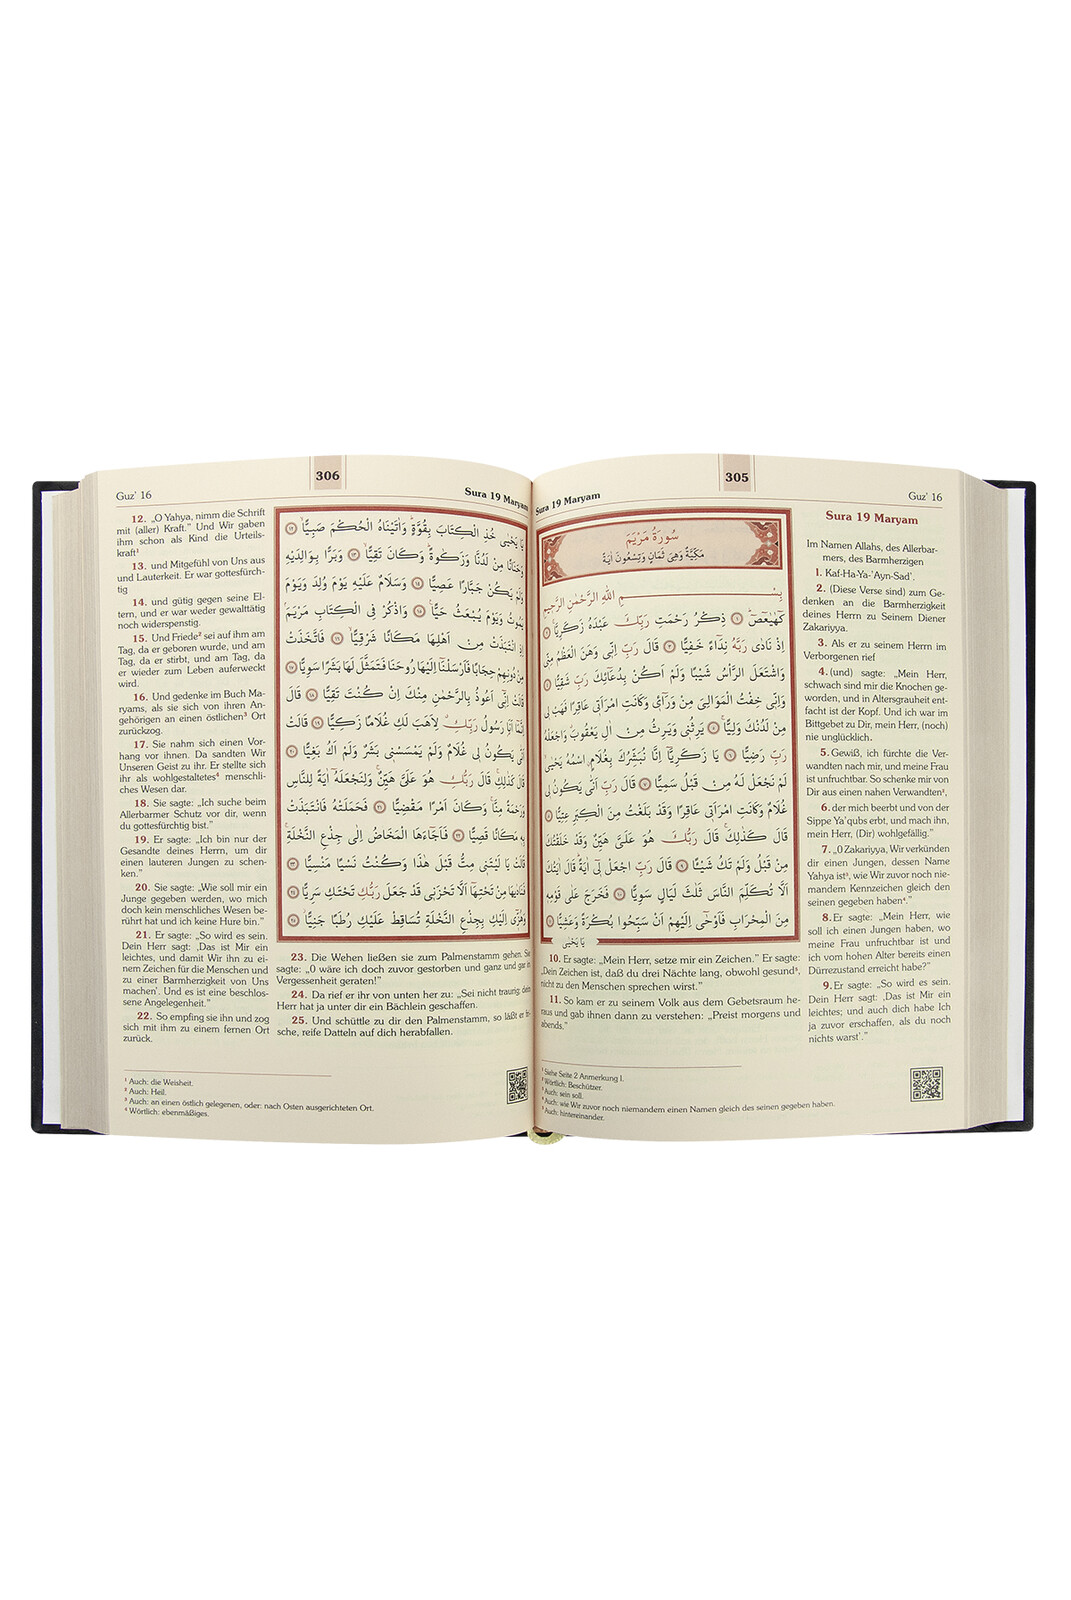 305
Sura 19 Maryam
Guz' 16
سُورَةُ مَرْيَمَ
مَكِّيَّةٌ وَهِىَ ثَمَانٍ وَتِسْعُونَ اٰيَةً
بِسْمِ اللّٰهِ الرَّحْمٰنِ الرَّحِيمِ
كٓهٰيٰعٓصٓ ﴿١﴾ ذِكْرُ رَحْمَتِ رَبِّكَ عَبْدَهُ زَكَرِيَّا ﴿٢﴾
اِذْ نَادٰى رَبَّهُ نِدَٓاءً خَفِيًّا ﴿٣﴾ قَالَ رَبِّ اِنّٖى وَهَنَ الْعَظْمُ مِنّٖى
وَاشْتَعَلَ الرَّأْسُ شَيْبًا وَلَمْ اَكُنْ بِدُعَٓائِكَ رَبِّ شَقِيًّا ﴿٤﴾
وَاِنّٖى خِفْتُ الْمَوَالِىَ مِنْ وَرَٓاءٖى وَكَانَتِ امْرَاَتٖى عَاقِرًا فَهَبْ لٖى
مِنْ لَدُنْكَ وَلِيًّا ﴿٥﴾ يَرِثُنٖى وَيَرِثُ مِنْ اٰلِ يَعْقُوبَ وَاجْعَلْهُ
رَبِّ رَضِيًّا ﴿٦﴾ يَا زَكَرِيَّٓا اِنَّا نُبَشِّرُكَ بِغُلَامٍ اسْمُهُ يَحْيٰى
لَمْ نَجْعَلْ لَهُ مِنْ قَبْلُ سَمِيًّا ﴿٧﴾ قَالَ رَبِّ اَنّٰى يَكُونُ لٖى
غُلَامٌ وَكَانَتِ امْرَاَتٖى عَاقِرًا وَقَدْ بَلَغْتُ مِنَ الْكِبَرِ عِتِيًّا ﴿٨﴾
قَالَ كَذٰلِكَ قَالَ رَبُّكَ هُوَ عَلَىَّ هَيِّنٌ وَقَدْ خَلَقْتُكَ
مِنْ قَبْلُ وَلَمْ تَكُ شَيْـًٔا ﴿٩﴾ قَالَ رَبِّ اجْعَلْ لٖٓى اٰيَةً قَالَ اٰيَتُكَ
اَلَّا تُكَلِّمَ النَّاسَ ثَلٰثَ لَيَالٍ سَوِيًّا ﴿١٠﴾ فَخَرَجَ عَلٰى قَوْمِهٖ
مِنَ الْمِحْرَابِ فَاَوْحٰٓى اِلَيْهِمْ اَنْ سَبِّحُوا بُكْرَةً وَعَشِيًّا ﴿١١﴾
يَا يَحْيٰى
Sura 19 Maryam
Im Namen Allahs, des Allerbar-
mers, des Barmherzigen
1. Kaf-Ha-Ya-'Ayn-Sad¹.
2. (Diese Verse sind) zum Ge-
denken an die Barmherzigkeit
deines Herrn zu Seinem Diener
Zakariyya.
3. Als er zu seinem Herrn im
Verborgenen rief
4. (und) sagte: „Mein Herr,
schwach sind mir die Knochen ge-
worden, und in Altersgrauheit ent-
facht ist der Kopf. Und ich war im
Bittgebet zu Dir, mein Herr, (noch)
nie unglücklich.
5. Gewiß, ich fürchte die Ver-
wandten nach mir, und meine Frau
ist unfruchtbar. So schenke mir von
Dir aus einen nahen Verwandten²,
6. der mich beerbt und von der
Sippe Ya'qubs erbt, und mach ihn,
mein Herr, (Dir) wohlgefällig."
7. „O Zakariyya, Wir verkünden
dir einen Jungen, dessen Name
Yahya ist³, wie Wir zuvor noch nie-
mandem Kennzeichen gleich den
seinen gegeben haben⁴."
8. Er sagte: „Mein Herr, wie
soll ich einen Jungen haben, wo
meine Frau unfruchtbar ist und
ich vom hohen Alter bereits einen
Dürrezustand erreicht habe?"
9. Er sagte: „So wird es sein.
Dein Herr sagt: ‚Das ist Mir ein
leichtes; und auch dich habe Ich
ja zuvor erschaffen, als du noch
nichts warst'."
10. Er sagte: „Mein Herr, setze mir ein Zeichen." Er sagte:
„Dein Zeichen ist, daß du drei Nächte lang, obwohl gesund⁵,
nicht zu den Menschen sprechen wirst."
11. So kam er zu seinem Volk aus dem Gebetsraum he-
raus und gab ihnen dann zu verstehen: „Preist morgens und
abends."
¹ Siehe Seite 2 Anmerkung 1.
² Wörtlich: Beschützer.
³ Auch: sein soll.
⁴ Auch: wie Wir zuvor noch niemandem einen Namen gleich des seinen gegeben haben.
⁵ Auch: hintereinander.
306
Guz' 16
Sura 19 Maryam
يَا يَحْيٰى خُذِ الْكِتَابَ بِقُوَّةٍ وَاٰتَيْنَاهُ الْحُكْمَ صَبِيًّا ﴿١٢﴾
وَحَنَانًا مِنْ لَدُنَّا وَزَكٰوةً وَكَانَ تَقِيًّا ﴿١٣﴾ وَبَرًّا بِوَالِدَيْهِ
وَلَمْ يَكُنْ جَبَّارًا عَصِيًّا ﴿١٤﴾ وَسَلَامٌ عَلَيْهِ يَوْمَ وُلِدَ وَيَوْمَ
يَمُوتُ وَيَوْمَ يُبْعَثُ حَيًّا ﴿١٥﴾ وَاذْكُرْ فِى الْكِتَابِ مَرْيَمَ
اِذِ انْتَبَذَتْ مِنْ اَهْلِهَا مَكَانًا شَرْقِيًّا ﴿١٦﴾ فَاتَّخَذَتْ
مِنْ دُونِهِمْ حِجَابًا فَاَرْسَلْنَٓا اِلَيْهَا رُوحَنَا فَتَمَثَّلَ لَهَا بَشَرًا سَوِيًّا ﴿١٧﴾
قَالَتْ اِنّٖٓى اَعُوذُ بِالرَّحْمٰنِ مِنْكَ اِنْ كُنْتَ تَقِيًّا ﴿١٨﴾ قَالَ
اِنَّمَٓا اَنَا رَسُولُ رَبِّكِ لِاَهَبَ لَكِ غُلَامًا زَكِيًّا ﴿١٩﴾ قَالَتْ
اَنّٰى يَكُونُ لٖى غُلَامٌ وَلَمْ يَمْسَسْنٖى بَشَرٌ وَلَمْ اَكُ بَغِيًّا ﴿٢٠﴾
قَالَ كَذٰلِكِ قَالَ رَبُّكِ هُوَ عَلَىَّ هَيِّنٌ وَلِنَجْعَلَهُٓ اٰيَةً لِلنَّاسِ
وَرَحْمَةً مِنَّا وَكَانَ اَمْرًا مَقْضِيًّا ﴿٢١﴾ فَحَمَلَتْهُ فَانْتَبَذَتْ
بِهٖ مَكَانًا قَصِيًّا ﴿٢٢﴾ فَاَجَٓاءَهَا الْمَخَاضُ اِلٰى جِذْعِ النَّخْلَةِ
قَالَتْ يَا لَيْتَنٖى مِتُّ قَبْلَ هٰذَا وَكُنْتُ نَسْيًا مَنْسِيًّا ﴿٢٣﴾
فَنَادٰيهَا مِنْ تَحْتِهَٓا اَلَّا تَحْزَنٖى قَدْ جَعَلَ رَبُّكِ تَحْتَكِ سَرِيًّا ﴿٢٤﴾
وَهُزّٖٓى اِلَيْكِ بِجِذْعِ النَّخْلَةِ تُسَاقِطْ عَلَيْكِ رُطَبًا جَنِيًّا ﴿٢٥﴾
12. „O Yahya, nimm die Schrift
mit (aller) Kraft." Und Wir gaben
ihm schon als Kind die Urteils-
kraft¹
13. und Mitgefühl von Uns aus
und Lauterkeit. Er war gottesfürch-
tig
14. und gütig gegen seine El-
tern, und er war weder gewalttätig
noch widerspenstig.
15. Und Friede² sei auf ihm am
Tag, da er geboren wurde, und am
Tag, da er stirbt, und am Tag, da
er wieder zum Leben auferweckt
wird.
16. Und gedenke im Buch Ma-
ryams, als sie sich von ihren An-
gehörigen an einen östlichen³ Ort
zurückzog.
17. Sie nahm sich einen Vor-
hang vor ihnen. Da sandten Wir
Unseren Geist zu ihr. Er stellte sich
ihr als wohlgestaltetes⁴ menschli-
ches Wesen dar.
18. Sie sagte: „Ich suche beim
Allerbarmer Schutz vor dir, wenn
du gottesfürchtig bist."
19. Er sagte: „Ich bin nur der
Gesandte deines Herrn, um dir
einen lauteren Jungen zu schen-
ken."
20. Sie sagte: „Wie soll mir ein
Junge gegeben werden, wo mich
doch kein menschliches Wesen be-
rührt hat und ich keine Hure bin."
21. Er sagte: „So wird es sein.
Dein Herr sagt: ‚Das ist Mir ein
leichtes, und damit Wir ihn zu ei-
nem Zeichen für die Menschen und
zu einer Barmherzigkeit von Uns
machen'. Und es ist eine beschlos-
sene Angelegenheit."
22. So empfing sie ihn und zog
sich mit ihm zu einem fernen Ort
zurück.
23. Die Wehen ließen sie zum Palmenstamm gehen. Sie
sagte: „O wäre ich doch zuvor gestorben und ganz und gar in
Vergessenheit geraten!"
24. Da rief er ihr von unten her zu: „Sei nicht traurig; dein
Herr hat ja unter dir ein Bächlein geschaffen.
25. Und schüttle zu dir den Palmenstamm, so läßt er fri-
sche, reife Datteln auf dich herabfallen.
¹ Auch: die Weisheit.
² Auch: Heil.
³ Auch: an einen östlich gelegenen, oder: nach Osten ausgerichteten Ort.
⁴ Wörtlich: ebenmäßiges.